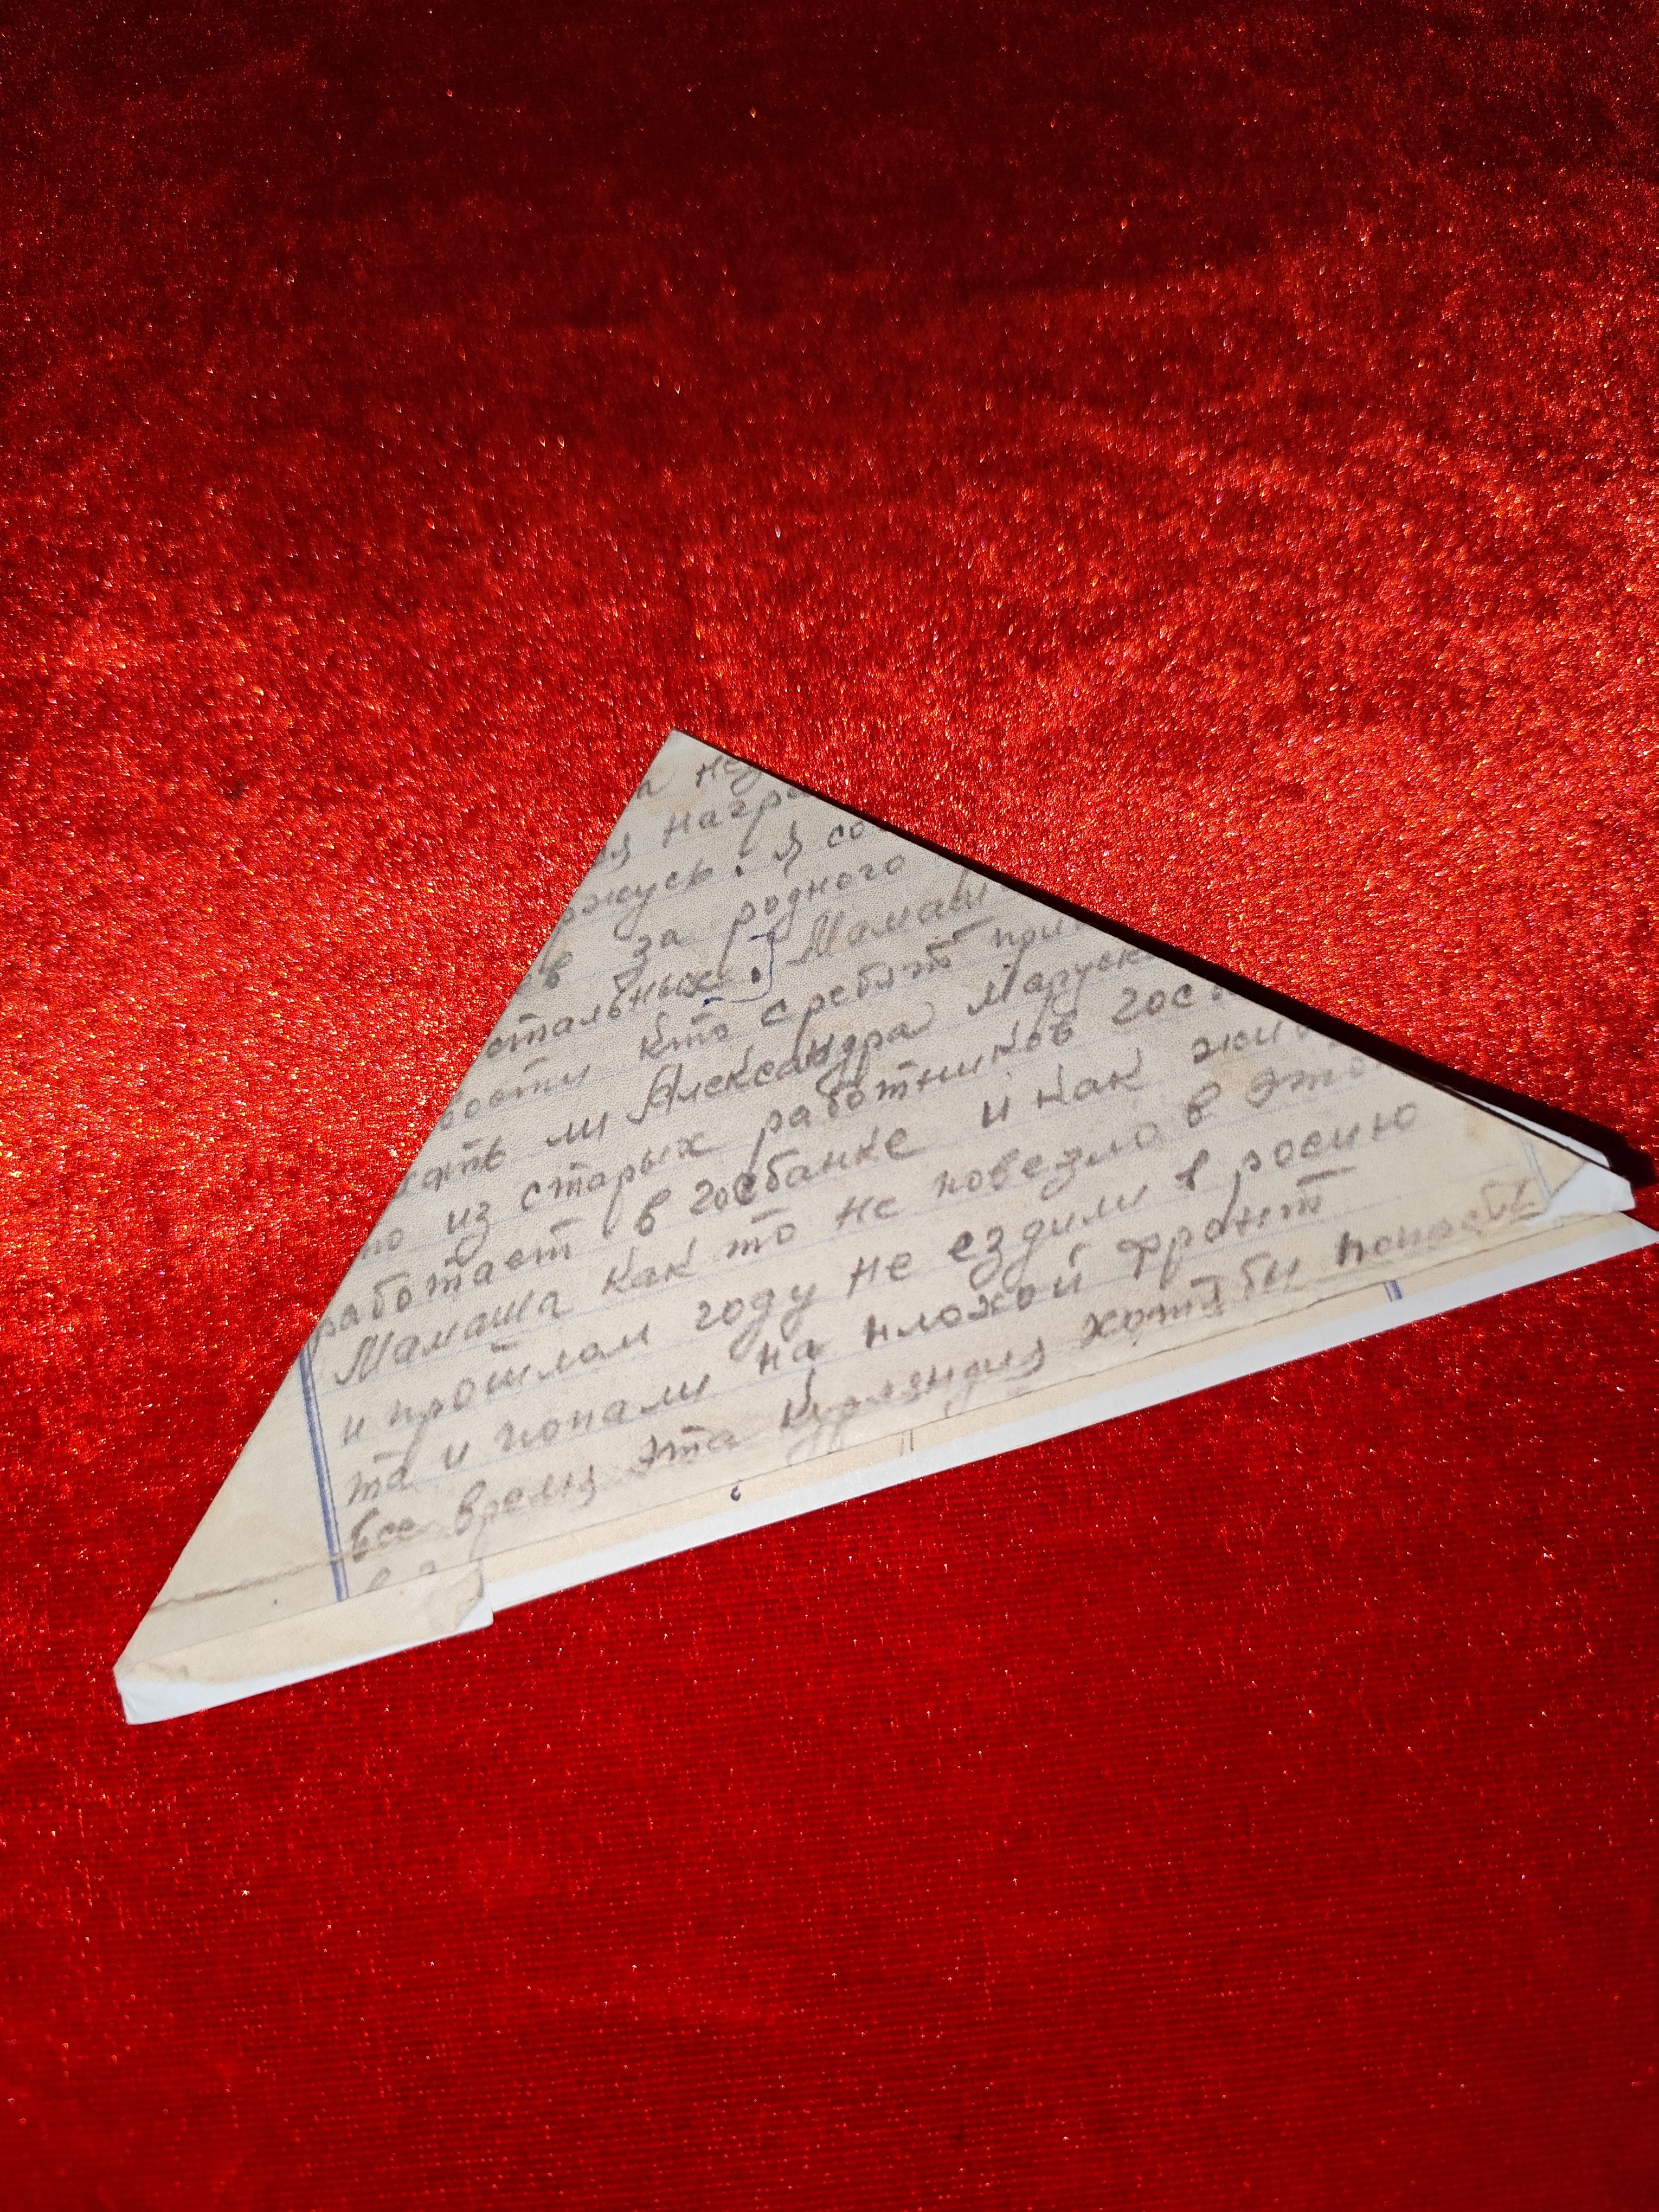 а не
я награ
ржусь. Я со
в за родного
стальных. Мамаш
ности кто с ребят при
жать ли Александра Маруськ
но из старых работников гос
работает в госбанке и как жив
Мамаша как то не повезло в это
и прошлом году не ездили в росию
та и попали на плохой фронт
все время эта Курляндия хотя бы попасть